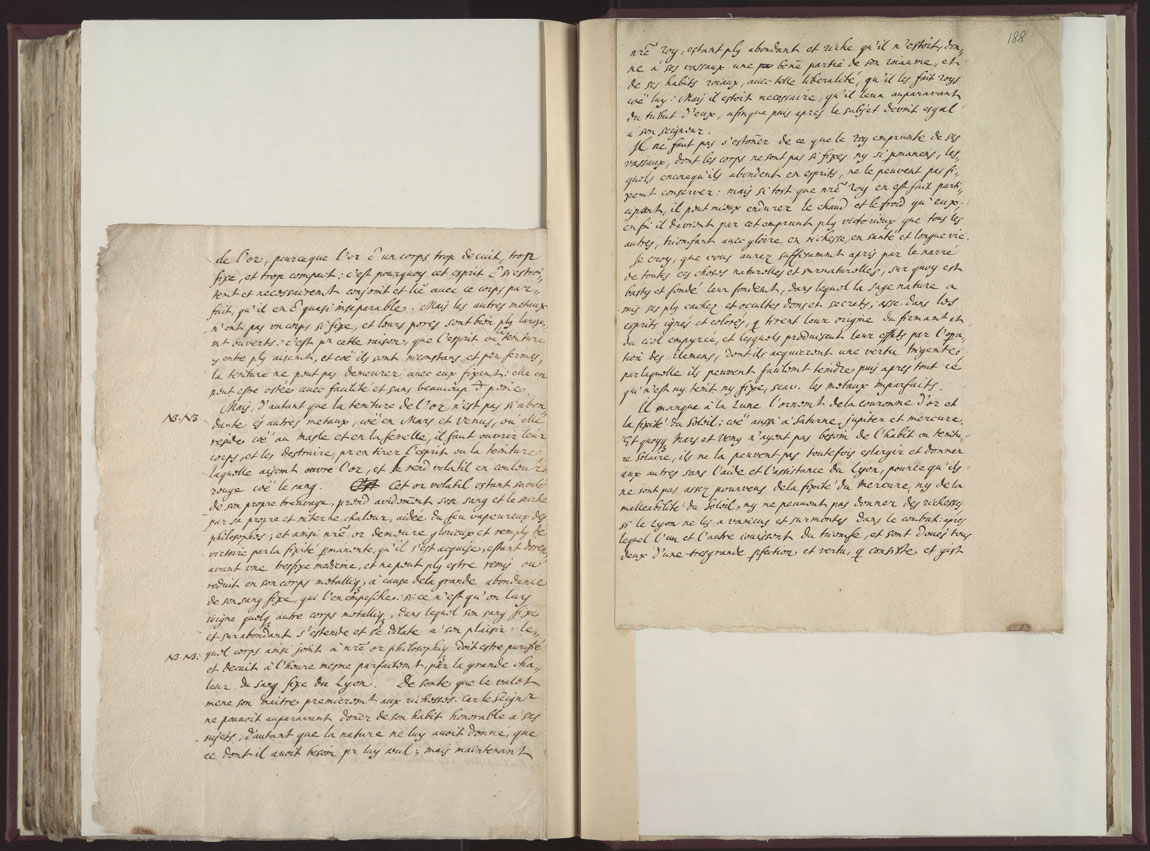 de l'or, pource que l'or ē un corps trop decuit, trop
fixe, et trop compact: c'est pourquoy cet esprit ē si estroi,
tent et necessairemt conjoint et lié avec ce corps par,
fait, qu'il en ē quasi inseparable. Mais les autres metaux
n'ont pas un corps si fixe, et leurs pores sont bien plꝰ large,
mt ouverts: c'est pr cette raison, que l'esprit ou la teinture
y entre plꝰ aisemt, et coē ils sont inconstans, et peu fermes,
la teinture ne peut pas demeurer avec eux fixemt: elle en
peut estre ostée avec facilité et sans beaucoup de peine.
Mais, d'autant que la teinture de l'or n'est pas si abon
NB.NB. dante és autres metaux, coē en Mars et Venus, où elle
reside coē au masle et en la femelle, il faut ouvrir leur
corps, et les destruire, pr en tirer l'esprit ou la teinture,
laquelle aisemt ouvre l'or, et le rend volatil en couleur
rouge coē le sang. Cet or volatil estant saoulé
de son propre breuvage, prend avidement son sang et le seiche
par sa propre et interne chaleur, aidée du feu vapeureux des
philosophes; et ainsi nrē or demeure glorieux et remply de
victoire par la fixité pmanente, qu'il s'est acquise, estant dores,
avant une tresfixe medecine, et ne peut plꝰ estre remis ou
reduit en son corps metalliq, à cause de la grande abondance
de son sang fixe, qui l'en empesche: si ce n'est qu'on luy
joigne quelq autre corps metalliq, dans lequel son sang fixe
et surabondant s'estende et se dilate a son plaisir: le,
NB.NB: quel corps ainsi joint à nrē or philosophiq doit estre purifié
et decuit à l'heure mesme parfaitemt, par la grande cha,
leur du sang fixe du Lyon. De sorte que le valet
mene son maitre premieremt aux richesses: car le Seignr
ne pouvoit auparavant doñer de son habit honorable a ses
sujets, d'autant que la nature ne luy avoit donné, que
ce dont il avoit besoin pr luy seul; mais maintenant
188
nrē roy, estant plꝰ abondant et riche qu'il n'estoit, don,
ne à ses vassaux une boñe partie de son roiaume, et
de ses habits roiaux, avec telle liberalité, qu'il les fait roys
coē luy: Mais il estoit necessaire, qu'il leva auparavant
du tribut d'eux, afinque puis apres le subjet devint esgal
a son seigneur.
Il ne faut pas s'estoñer de ce que le roy emprunte de ses
vassaux, dont les corps ne sont pas si fixes ny si pmanens, les,
quels encorequ'ils abondent en esprits, ne le peuvent pas fi,
xemt conserver: mais si tost que nrē roy en est fait parti,
cipant, il peut mieux endurer le chaud et le froid qu'eux:
enfin il devient par cet emprunt plꝰ victorieux que tous les
autres, triomfant avec gloire en richesse, en santé et longue vie.
Je croy, que vous aurez suffisammt apris par le narré
de toutes ces choses naturelles et surnaturelles, sur quoy est
basty et fondé leur fondemt, dans lequel la sage nature a
mis ses plꝰ cachez et occultes dons et secrets, asc. dans les
esprits ignés et colorés, q tirent leur origine du firmamt et
du ciel empyrée, et lesquels produisent leur effets par l'opa,
tion des elemens, dont ils acquierent une vertu tingente,
par laquelle ils peuvent facilemt teindre puis apres tout ce
qui n'est ny teint ny fixe, scav. les metaux imparfaits.
Il manque à la Lune l'ornemt de la couronne d'or et
la fixité du Soleil: coē aussi a Saturne, jupiter et mercure.
Et quoyq Mars et Venꝰ n'ayent pas besoin de l'habit ou teintu,
re Solaire, ils ne la peuvent pas toutefois eslargir et donner
aux autres sans l'aide et l'assistance du Lyon, pource qu'ils
ne sont pas assez pourveus de la fixité du Mercure, ny de la
malleabilité du Soleil, ny ne peuvent pas donner des richesses,
si le Lyon ne les a vaincus et surmontés dans le combat: apres
lequel l'un et l'autre jouissent du triomfe, et sont doués tous
deux d'une tresgrande pfection et vertu, q consiste et gist